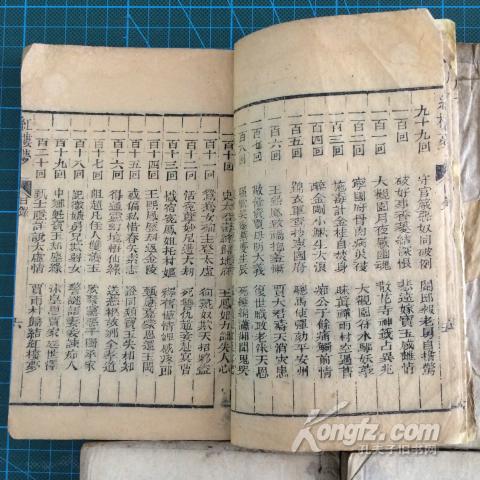 九十九回 守官箴惡奴同破例 閱邸報老舅自擔驚
一百回 破好事香菱結深恨 悲遠嫁寶玉感離情
大觀園月夜感幽魂 散花寺神籤占異兆
一百二回 寧國府骨肉病災祲 大觀園符水驅妖孽
一百三回 施毒計金桂自焚身 昧真禪雨村空遇舊
一百四回 醉金剛小鰍生大浪 痴公子餘痛觸前情
一百五回 錦衣軍查抄寧國府 驄馬使彈劾平安州
一百六回 王熙鳳致禍抱羞慚 賈太君禱天消災患
一百七回 散餘資賈母明大義 復世職政老沐天恩
一百八回 死纏綿瀟湘聞鬼哭
紅樓夢
目錄
六
王鳳姐力詘失人心
一百十一回 鴛鴦女殉主登太虛 狗彘奴欺天招夥盜
一百十二回 活冤孽妙尼遭大劫 死讐仇趙妾赴冥曹
一百十三回 懺宿冤鳳姐托村嫗 釋舊憾情婢感痴郎
一百十四回 王熙鳳歷幻返金陵 甄應嘉蒙恩還玉闕
一百十五回 惑偏私惜春矢素志 証同類寶玉失相知
一百十六回 得通靈幻境悟仙緣 送慈柩故鄉全孝道
一百十七回 阻超凡佳人雙護玉 欣聚黨惡子獨承家
一百十八回 記微嫌舅兄欺弱女 驚謎語妻妾諫痴人
一百十九回 中鄉魁寶玉却塵緣 沐皇恩賈家延世澤
一百二十回 甄士隱詳說太虛情 賈雨村歸結紅樓夢
Kongfz.com
孔夫子旧书网